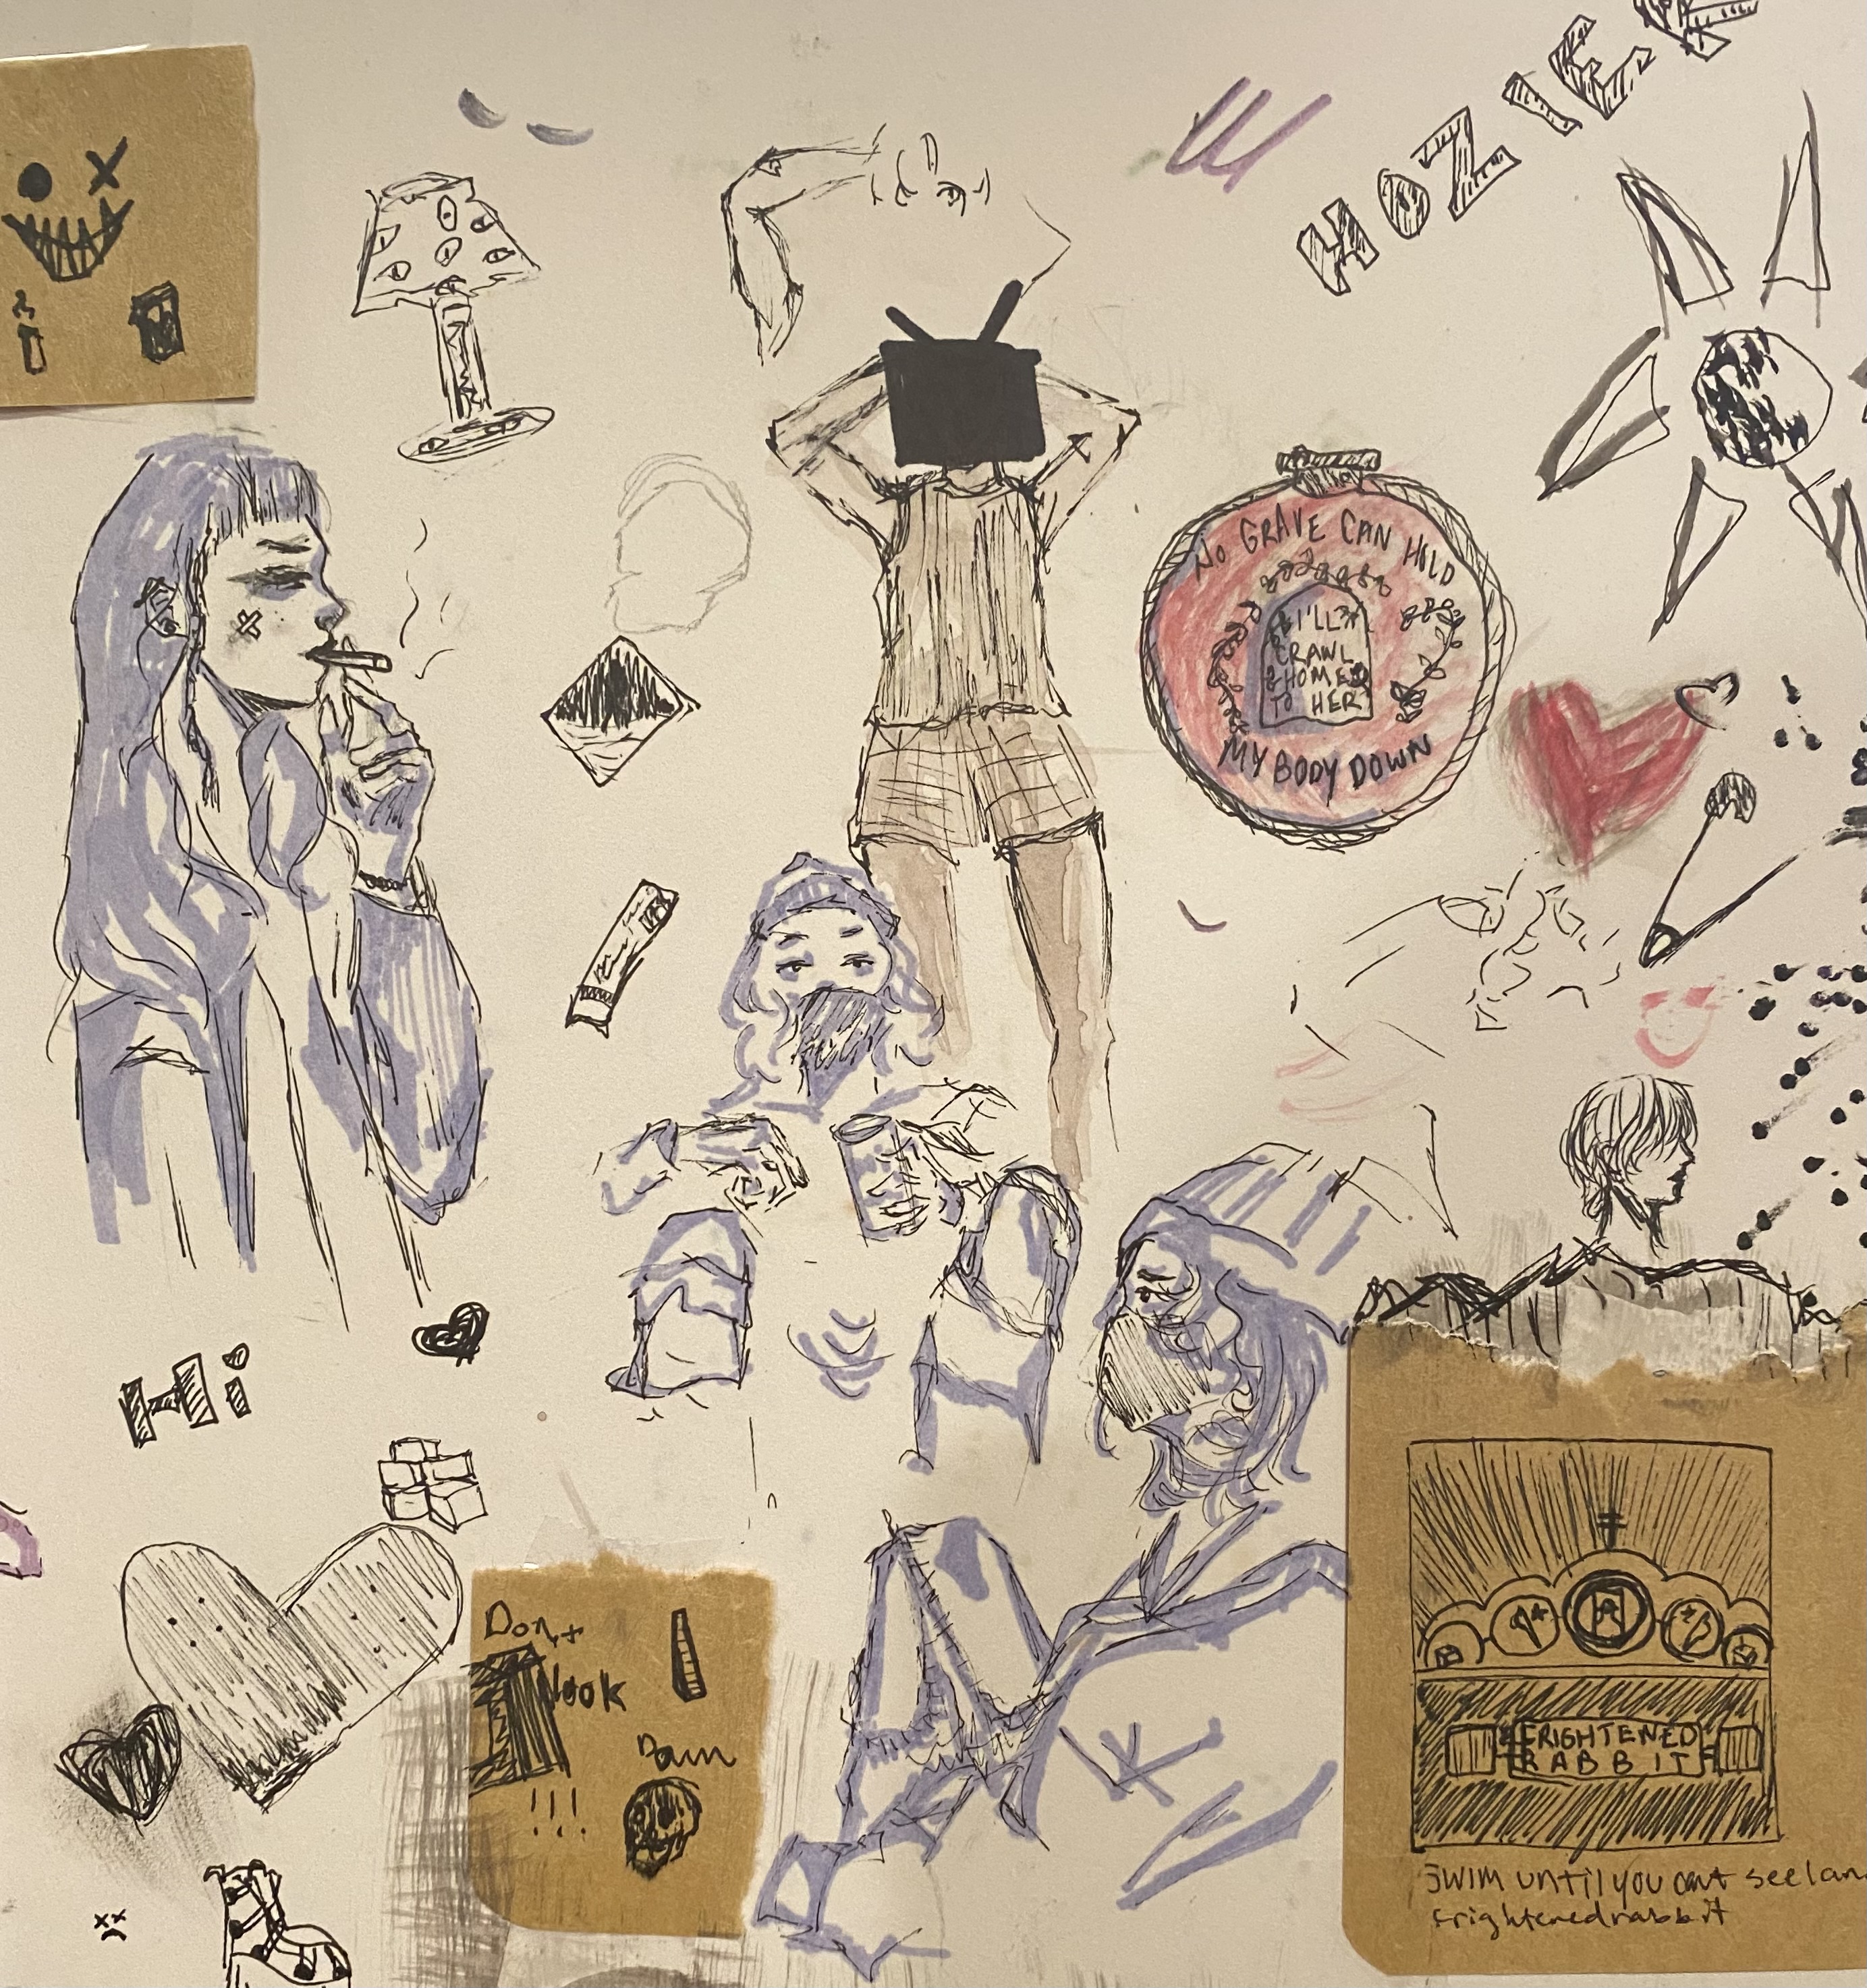 HOZIER
NO GRAVE CAN HOLD
I'LL
CRAWL
HOME
TO HER
MY BODY DOWN
Hi
Don't
look
!!!
Damn
FRIGHTENED
RABBIT
SWIM until you cant see lan
frightened rabbit